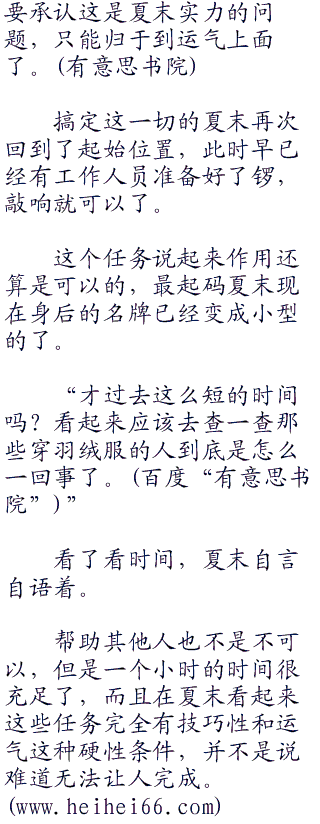 要承认这是夏末实力的问
题，只能归于到运气上面
了。(有意思书院)
搞定这一切的夏末再次
回到了起始位置，此时早已
经有工作人员准备好了锣，
敲响就可以了。
这个任务说起来作用还
算是可以的，最起码夏末现
在身后的名牌已经变成小型
的了。
“才过去这么短的时间
吗？看起来应该去查一查那
些穿羽绒服的人到底是怎么
一回事了。(百度“有意思书
院”)”
看了看时间，夏末自言
自语着。
帮助其他人也不是不可
以，但是一个小时的时间很
充足了，而且在夏末看起来
这些任务完全有技巧性和运
气这种硬性条件，并不是说
难道无法让人完成。
(www.heihei66.com)